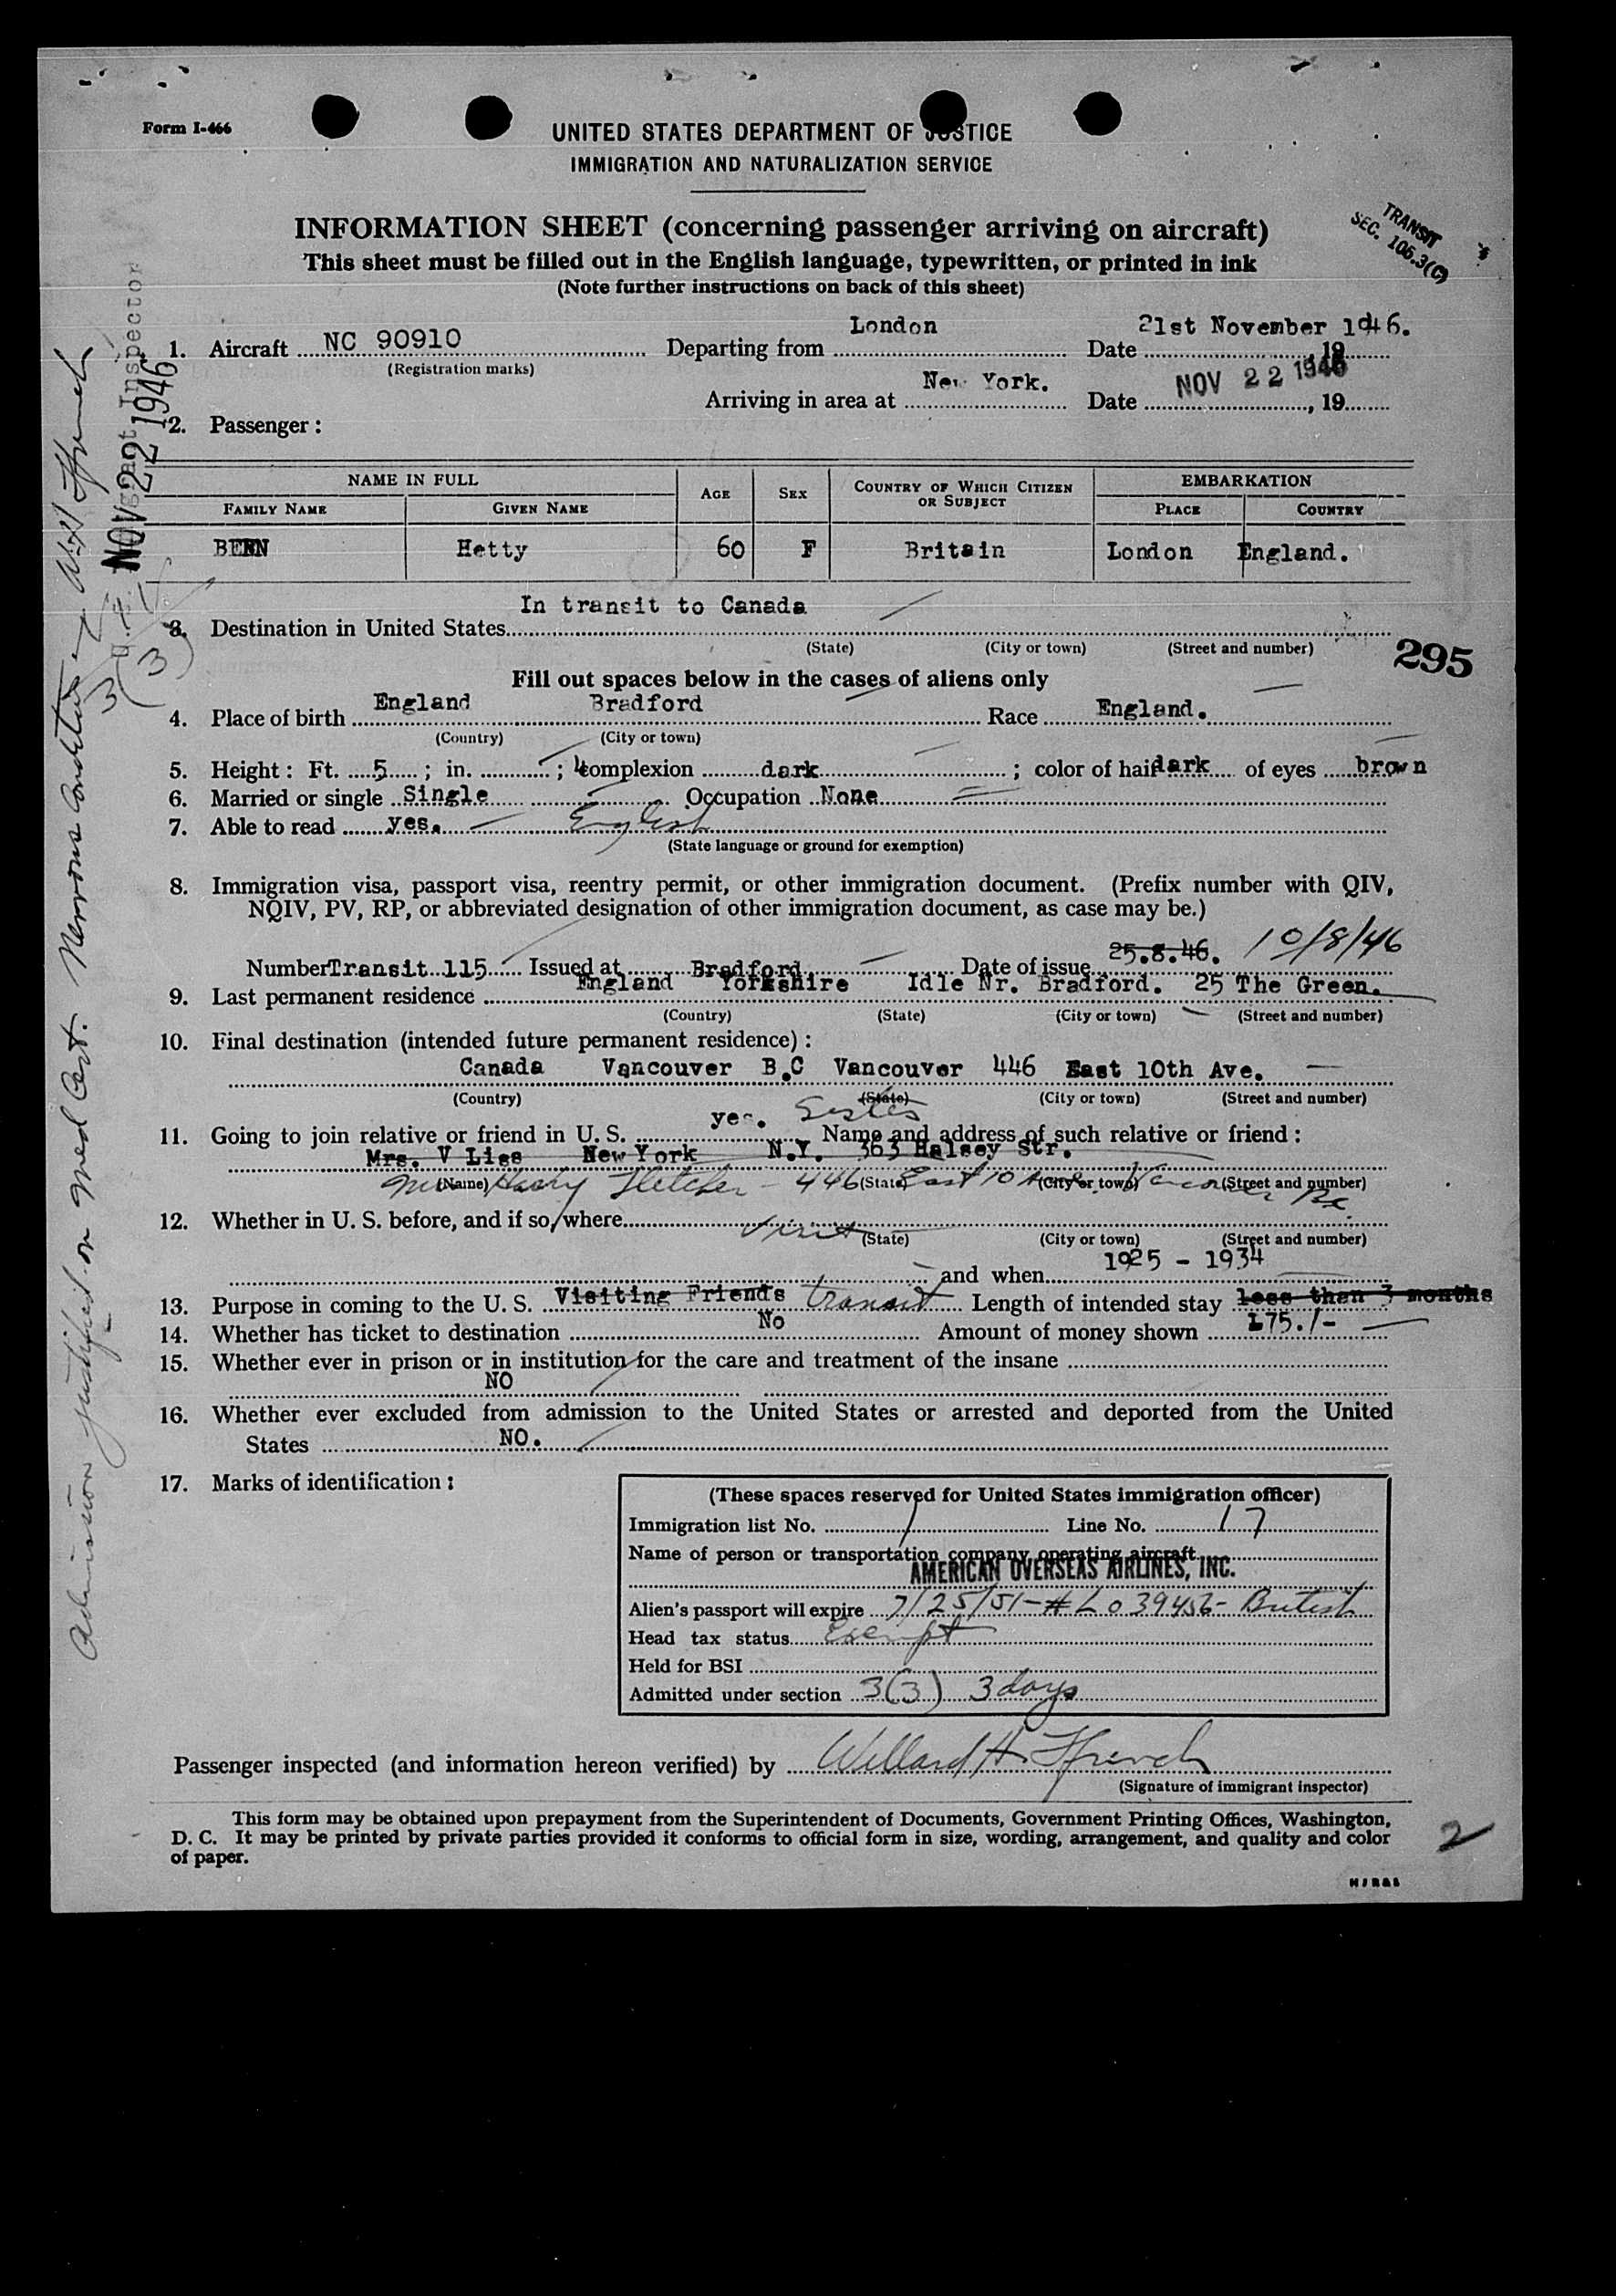 Form I-466
UNITED STATES DEPARTMENT OF JUSTICE
IMMIGRATION AND NATURALIZATION SERVICE
INFORMATION SHEET (concerning passenger arriving on aircraft)
This sheet must be filled out in the English language, typewritten, or printed in ink
(Note further instructions on back of this sheet)
TRANSIT
SEC. 106.3(C)
London 21st November 1946.
1. Aircraft NC 90910 Departing from Date , 19
(Registration marks)
New York. NOV 22 1946
Arriving in area at Date , 19
2. Passenger:
NAME IN FULL AGE SEX COUNTRY OF WHICH CITIZEN OR SUBJECT EMBARKATION
FAMILY NAME GIVEN NAME PLACE COUNTRY
BENN Hetty 60 F Britain London England.
In transit to Canada
3. Destination in United States
(State) (City or town) (Street and number)
295
Fill out spaces below in the cases of aliens only
England Bradford England.
4. Place of birth Race
(Country) (City or town)
5. Height: Ft. 5 ; in. ; 4 complexion dark ; color of hair dark of eyes brown
6. Married or single Single Occupation None
7. Able to read yes. English
(State language or ground for exemption)
8. Immigration visa, passport visa, reentry permit, or other immigration document. (Prefix number with QIV,
NQIV, PV, RP, or abbreviated designation of other immigration document, as case may be.)
25.8.46. 10/8/46
Number Transit 115 Issued at Bradford Date of issue
England Yorkshire Idle Nr. Bradford. 25 The Green.
9. Last permanent residence
(Country) (State) (City or town) (Street and number)
10. Final destination (intended future permanent residence):
Canada Vancouver B.C Vancouver 446 East 10th Ave.
(Country) (State) (City or town) (Street and number)
yes. Sister
11. Going to join relative or friend in U. S. Name and address of such relative or friend:
Mrs. V Liss New York N.Y. 363 Halsey Str.
(Name) (State) (City or town) (Street and number)
Harry Fletcher - 446 East 10 Ave. Vancouver BC.
12. Whether in U. S. before, and if so, where
visit
(State) (City or town) (Street and number)
1925 - 1934
and when
13. Purpose in coming to the U. S. Visiting Friends transit Length of intended stay less than 3 months
14. Whether has ticket to destination No Amount of money shown £75./-
15. Whether ever in prison or in institution for the care and treatment of the insane
NO
16. Whether ever excluded from admission to the United States or arrested and deported from the United
States NO.
17. Marks of identification:
(These spaces reserved for United States immigration officer)
Immigration list No. 1 Line No. 17
Name of person or transportation company operating aircraft
AMERICAN OVERSEAS AIRLINES, INC.
Alien's passport will expire 7/25/51-#Lo39456- British
Head tax status Exempt
Held for BSI
Admitted under section 3(3) 3 days
Passenger inspected (and information hereon verified) by Willard H. Ffrench
(Signature of immigrant inspector)
This form may be obtained upon prepayment from the Superintendent of Documents, Government Printing Offices, Washington,
D. C. It may be printed by private parties provided it conforms to official form in size, wording, arrangement, and quality and color
of paper.
2
Admission justified on Med Cert. Nervous Condition - W H Ffrench
NOV 22 1946
Immigrant Inspector
3(3)